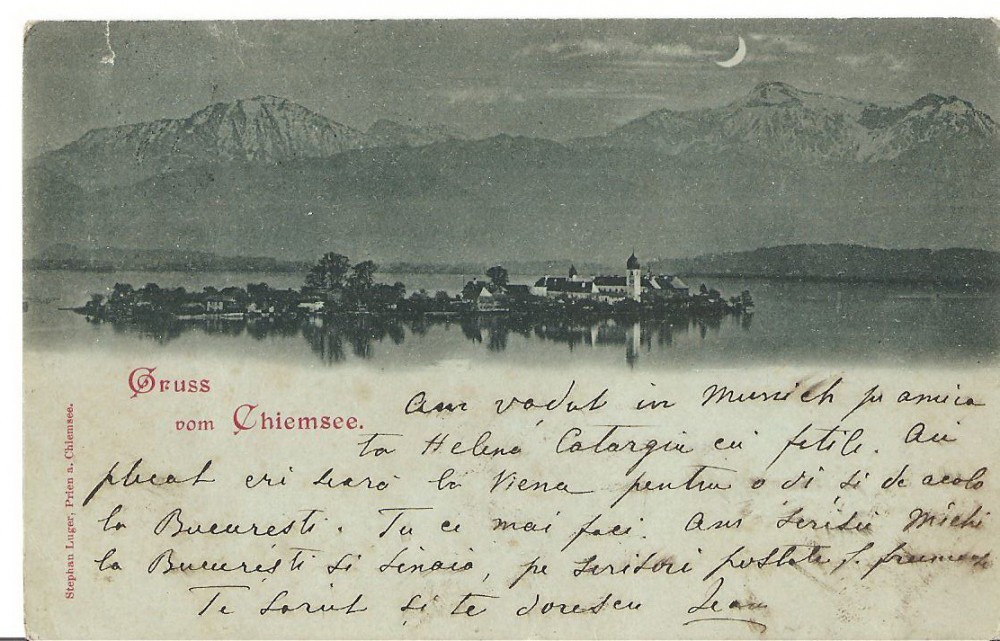 Gruss
vom Chiemsee.
Stephan Luger, Prien a. Chiemsee.
Am vadut in Munich pe amica
ta Helena Catargiu cu fetile. Au
plecat eri seara la Viena pentru o di si de acolo
la Bucuresti. Tu ce mai faci. Am scrisu Michi
la Bucuresti si Sinaia, pe scrisori postale f. frumoase
Te sarut si te dorescu Jean